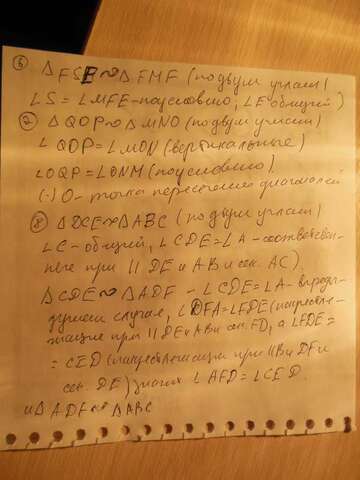 ⑥ △FSE ∾ △FMF (по двум углам)
∠S = ∠MFE - по условию, ∠F общий)
② △QOP ∾ △MNO (по двум углам)
∠QOP = ∠MON (вертикальные)
∠OQP = ∠ONM (по условию)
(·) O - точка пересечения диагоналей
⑧ △DCE ∾ △ABC (по двум углам)
∠C - общий, ∠CDE = ∠A - соответствен
ные при || DE и AB и сек. AC).
△CDE ∾ △ADF - ∠CDE = ∠A - в преды
дущем случае, ∠DFA = ∠FDE (накрестле-
жащие при || DE и AB и сек. FD, а ∠FDE =
= CED (накрестлежащие при || и DF и
сек. DE) значит ∠AFD = ∠CED.
и △ADF ∾ △ABC